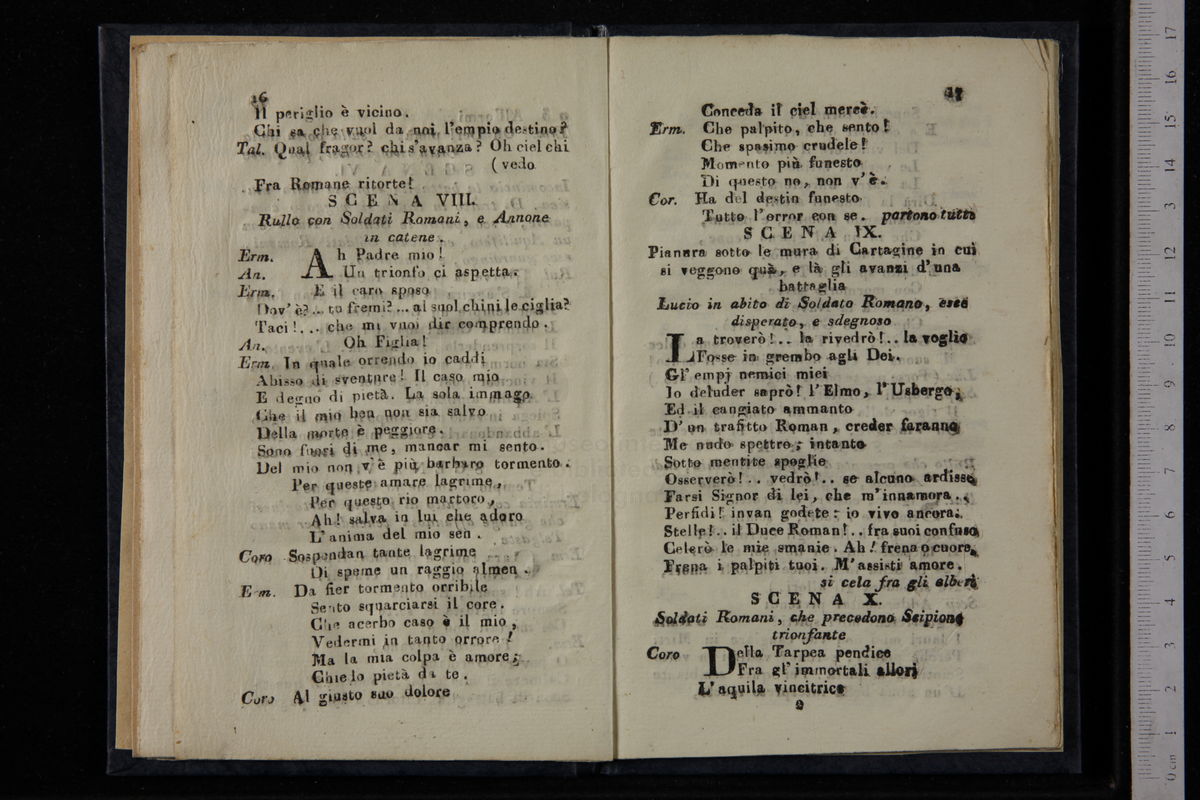 16
Il periglio è vicino.
Chi sa che vuol da noi l'empio destino?
Tal. Qual fragor? chi s'avanza? Oh ciel chi
(vedo
Fra Romane ritorte!
SCENA VIII.
Rullo con Soldati Romani, e Annone
in catene.
Erm. Ah Padre mio!
An. Un trionfo ci aspetta.
Erm. E il caro sposo
Dov'è? ... tu fremi? ... al suol chini le ciglia?
Taci! ... che mi vuoi dir comprendo.
An. Oh Figlia!
Erm. In quale orrendo io caddi
Abisso di sventure! Il caso mio
E degno di pietà. La sola immago
Che il mio ben non sia salvo
Della morte è peggiore.
Sono fuori di me, mancar mi sento.
Del mio non v'è più barbaro tormento.
Per queste amare lagrime,
Per questo rio martoro,
Ah! salva in lui che adoro
L'anima del mio sen.
Coro Sospendan tante lagrime
Di speme un raggio almen.
Erm. Da fier tormento orribile
Sento squarciarsi il core.
Che acerbo caso è il mio,
Vedermi in tanto orrore!
Ma la mia colpa è amore;
Chiedo pietà da te.
Coro Al giusto suo dolore
17
Conceda il ciel mercè.
Erm. Che palpito, che sento!
Che spasimo crudele!
Momento più funesto
Di questo no, non v'è.
Cor. Ha del destin funesto
Tutto l'orror con se. partono tutti
SCENA IX.
Pianura sotto le mura di Cartagine in cui
si veggono quà, e là gli avanzi d'una
battaglia
Lucio in abito di Soldato Romano, esce
disperato, e sdegnoso
La troverò!.. la rivedrò!.. la voglio
Fosse in grembo agli Dei.
Gl' empj nemici miei
Io deluder saprò! l'Elmo, l'Usbergo,
Ed il cangiato ammanto
D'un trafitto Roman, creder faranno
Me nudo spettro; intanto
Sotto mentite spoglie
Osserverò!.. vedrò!.. se alcuno ardisse
Farsi Signor di lei, che m'innamora..
Perfidi! invan godete: io vivo ancora.
Stelle!.. il Duce Roman!.. fra suoi confuso
Celerò le mie smanie. Ah! frena o cuore,
Frena i palpiti tuoi. M'assisti amore.
si cela fra gli alberi
SCENA X.
Soldati Romani, che precedono Scipione
trionfante
Coro Della Tarpea pendice
Fra gl' immortali allori
L'aquila vincitrice
2